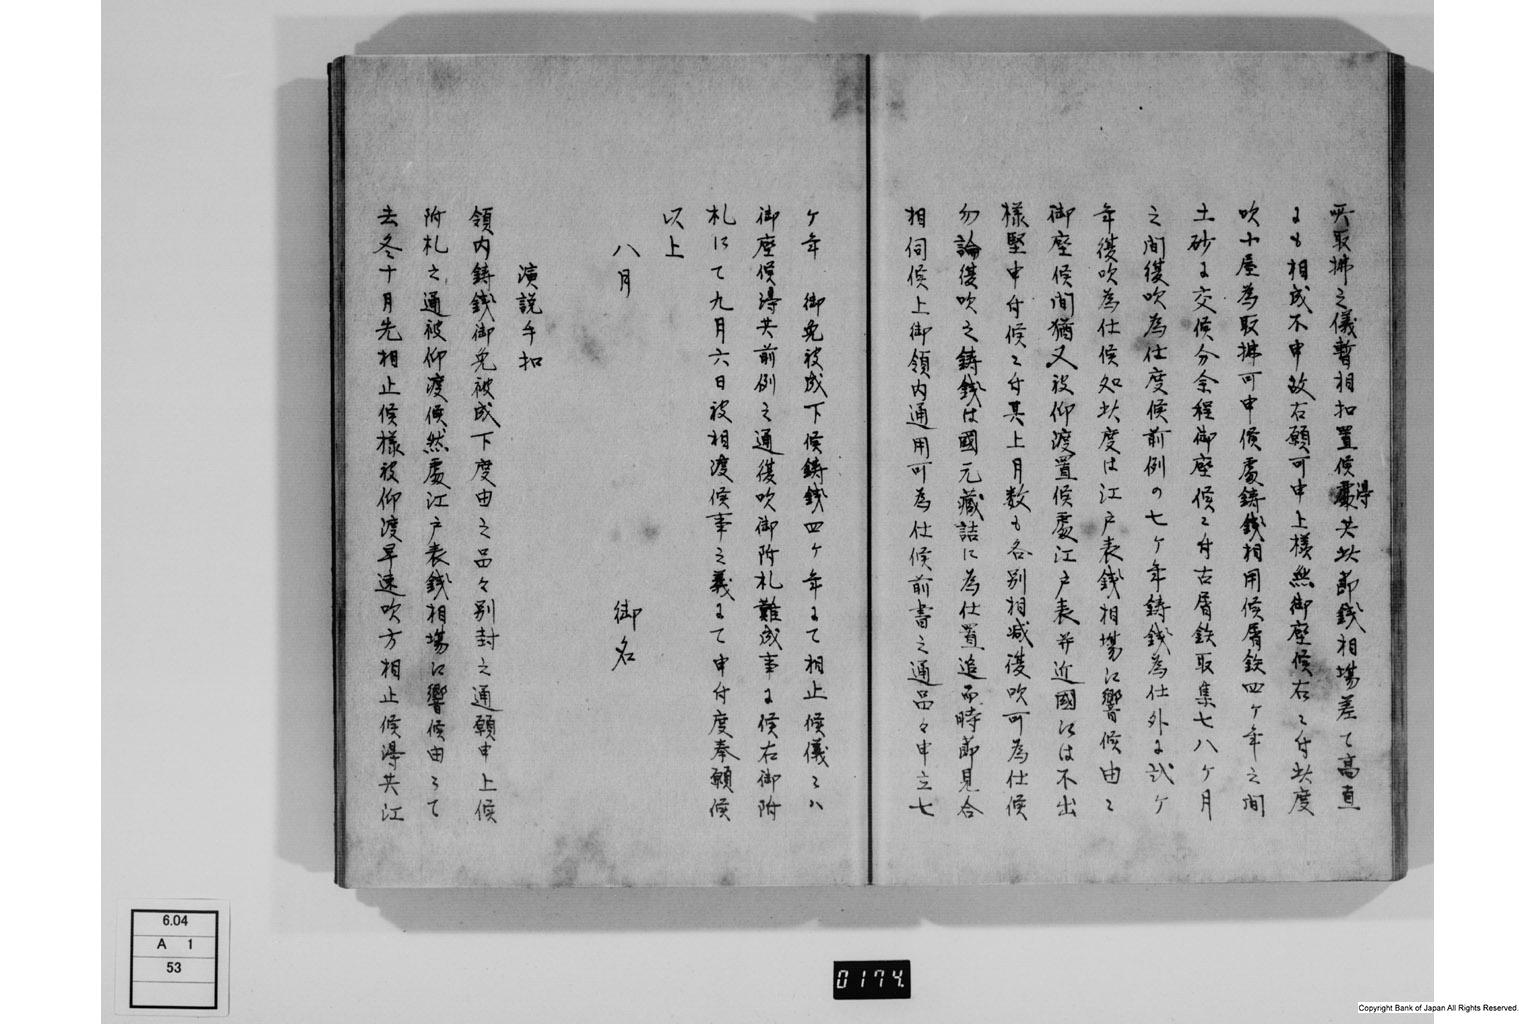 吹取拂之儀暫相扣置候得共此節銭相場差て高直
にも相成不申故右願可申上様無御座候右ニ付此度
吹小屋為取拂可申候處鋳銭相用候屑鉄四ケ年之間
土砂に交候分余程御座候ニ付古屑鉄取集七八ケ月
之間復吹為仕度候前例の七ケ年鋳銭為仕外に弐ケ
年復吹為仕候如此度は江戸表銭相場に響候由ニ
御座候間猶又被仰渡置候處江戸表并近國には不出
様堅申付候ニ付其上月数も各別相减復吹可為仕候
勿論復吹之鋳銭は國元蔵詰に為仕置追而時節見合
相伺候上御領内通用可為仕候前書之通品々申立七
ケ年 御免被成下候鋳銭四ケ年にて相止候儀ニハ
御座候得共前例之通復吹御附札難成事に候右御附
札にて九月六日被相渡候事之義にて申付度奉願候
以上
八月 御名
演説手扣
領内鋳銭御免被成下度由之品々別封之通願申上候
附札之通被仰渡候然處江戸表銭相場に響候由ニて
去冬十月先相止候様被仰渡早速吹方相止候得共江
6.04
A 1
53
0174.
Copyright Bank of Japan All Rights Reserved.